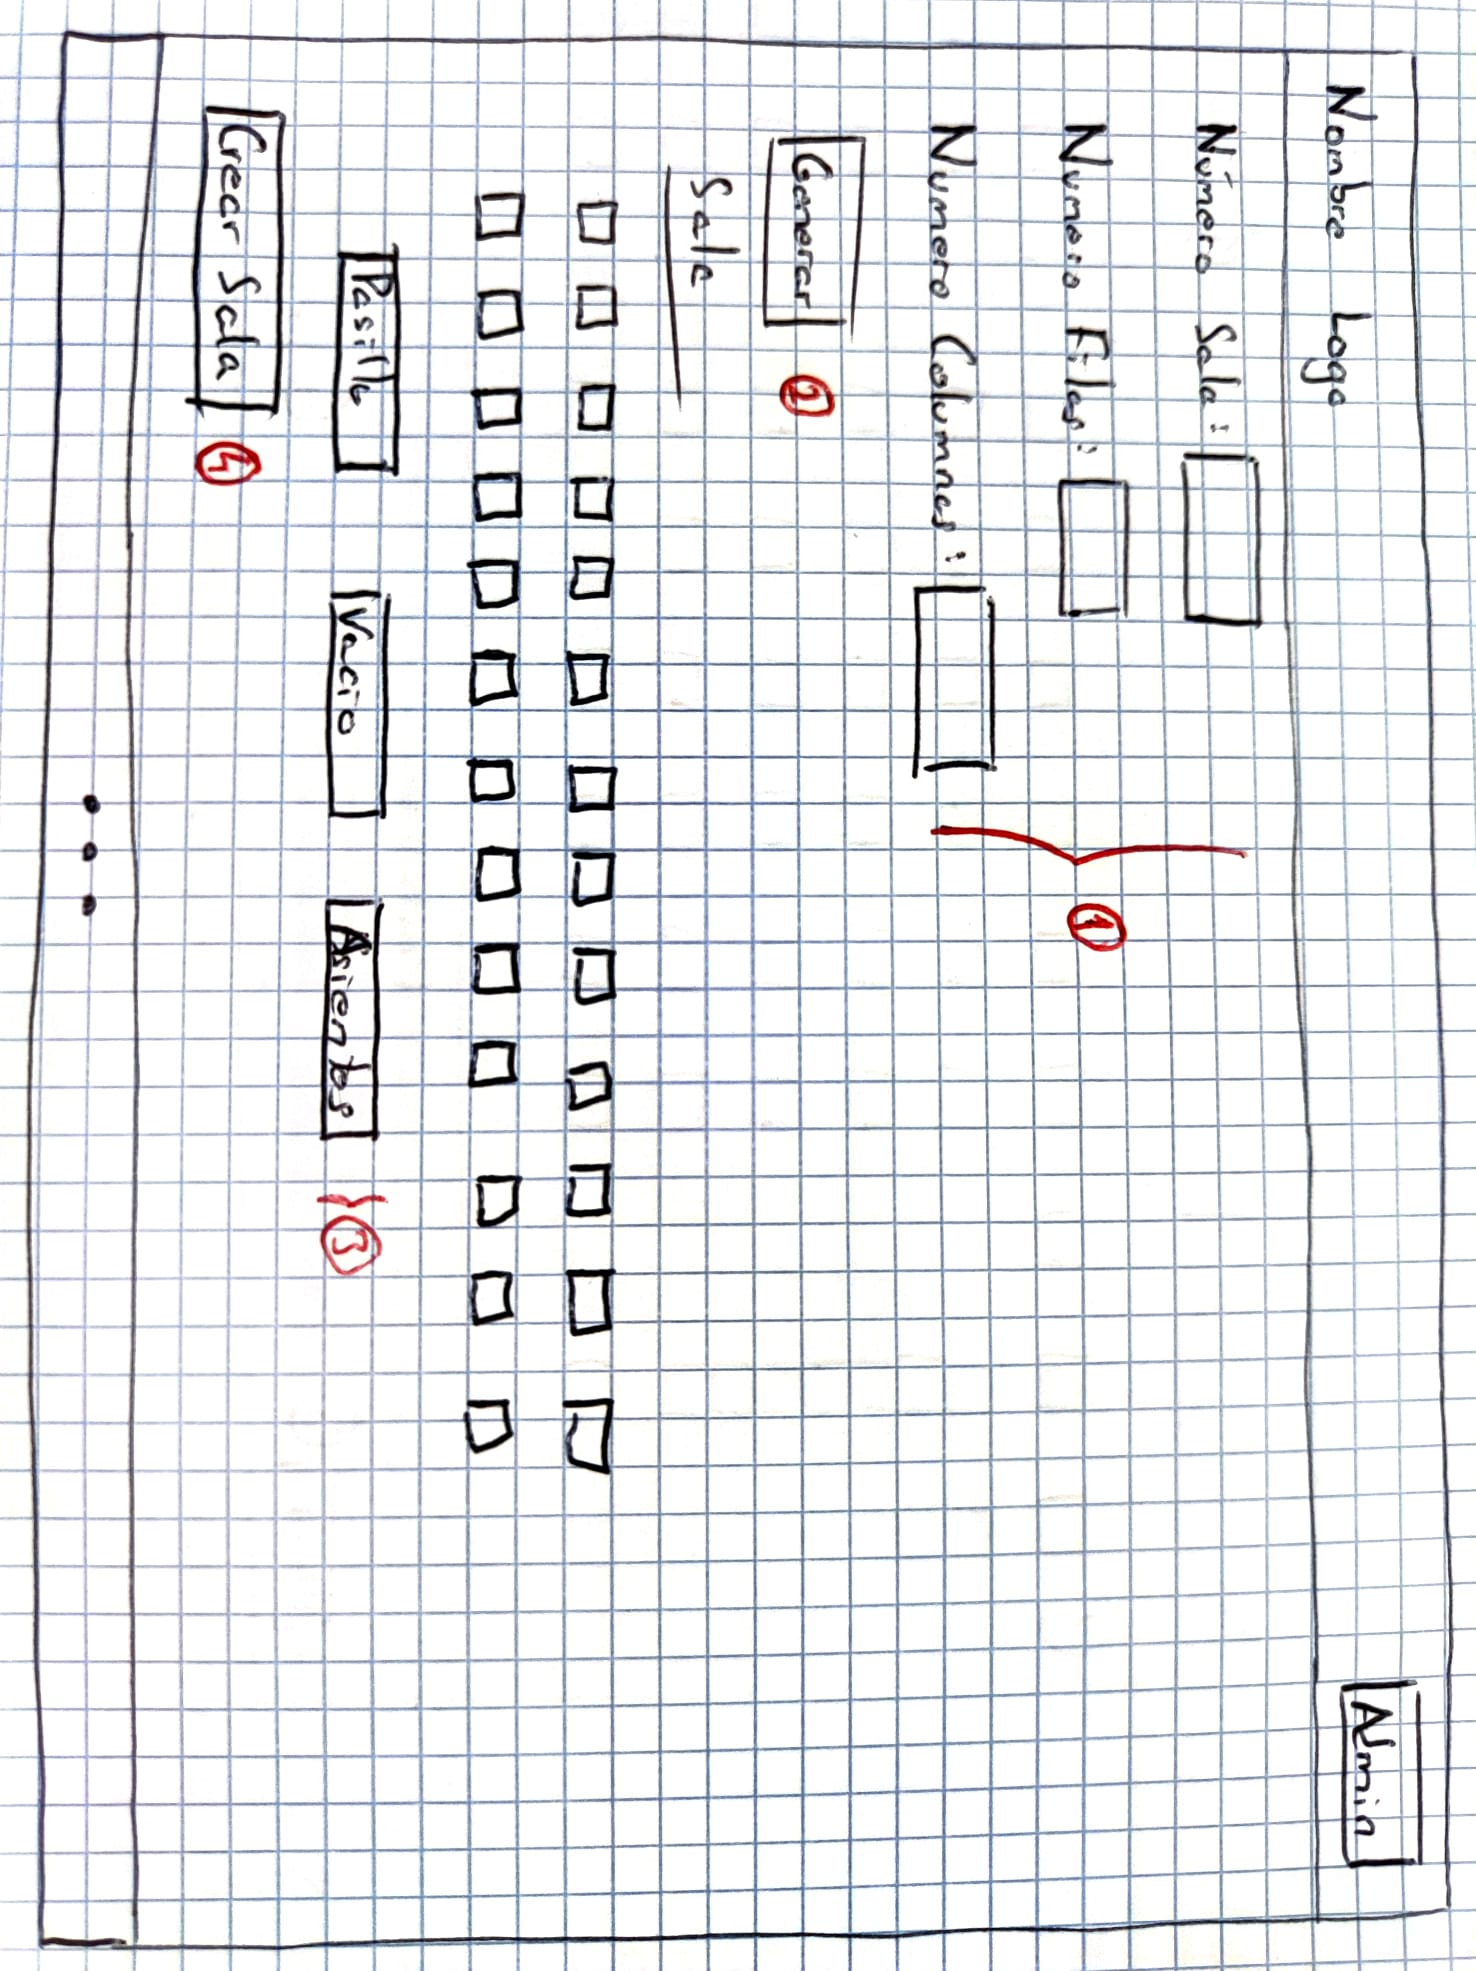 Nombre Logo
Admin
Número Sala:
Numero Filas:
①
Numero Columnas:
Generar ②
Sala
Pasillo Vacio Asientos } ③
Crear Sala ④
...